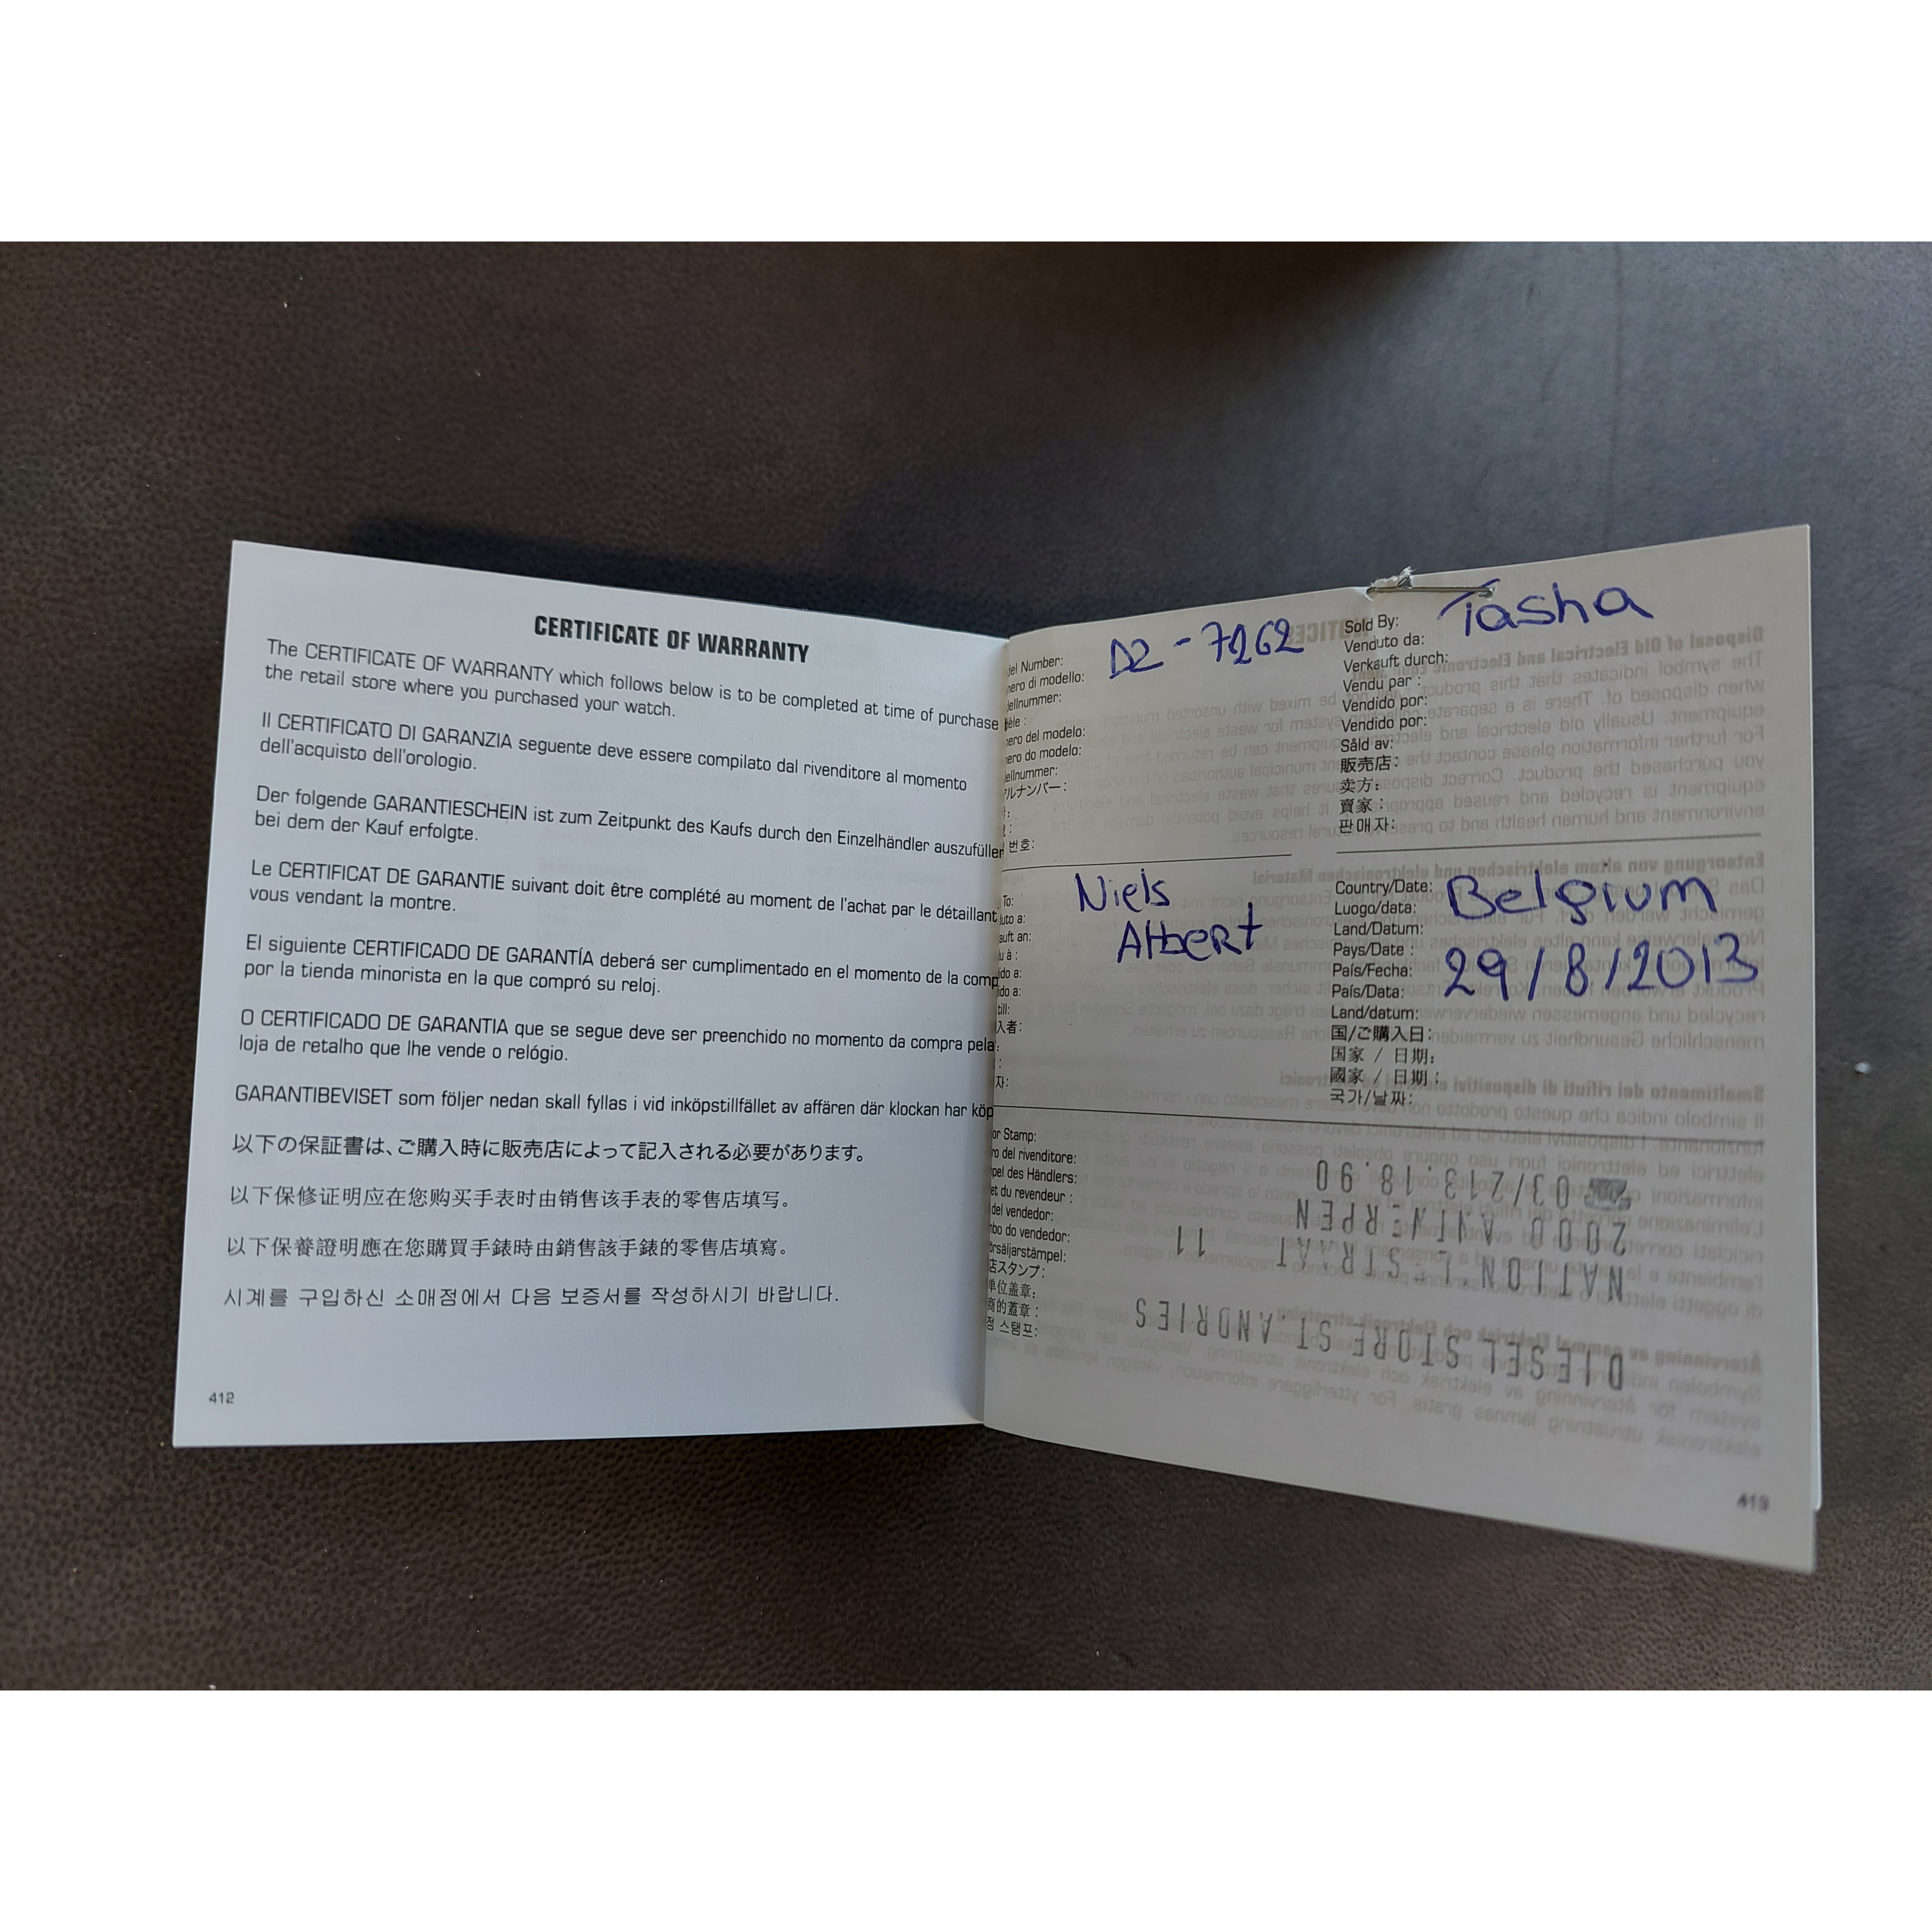 CERTIFICATE OF WARRANTY
The CERTIFICATE OF WARRANTY which follows below is to be completed at time of purchase
the retail store where you purchased your watch.
Il CERTIFICATO DI GARANZIA seguente deve essere compilato dal rivenditore al momento
dell'acquisto dell'orologio.
Der folgende GARANTIESCHEIN ist zum Zeitpunkt des Kaufs durch den Einzelhändler auszufüller
bei dem der Kauf erfolgte.
Le CERTIFICAT DE GARANTIE suivant doit être complété au moment de l'achat par le détaillant
vous vendant la montre.
El siguiente CERTIFICADO DE GARANTÍA deberá ser cumplimentado en el momento de la comp
por la tienda minorista en la que compró su reloj.
O CERTIFICADO DE GARANTIA que se segue deve ser preenchido no momento da compra pela
loja de retalho que lhe vende o relógio.
GARANTIBEVISET som följer nedan skall fyllas i vid inköpstillfället av affären där klockan har köp
以下の保証書は、ご購入時に販売店によって記入される必要があります。
以下保修证明应在您购买手表时由销售该手表的零售店填写。
以下保養證明應在您購買手錶時由銷售該手錶的零售店填寫。
시계를 구입하신 소매점에서 다음 보증서를 작성하시기 바랍니다.
412
del Number:
nero di modello:
dellnummer:
dèle :
nero del modelo:
nero do modelo:
dellnummer:
デルナンバー:
번호:
DZ-7262
Sold By:
Venduto da:
Verkauft durch:
Vendu par :
Vendido por:
Vendido por:
Såld av:
販売店:
卖方:
賣家:
판매자:
Tasha
To:
uto a:
auft an:
du à :
ido a:
ido a:
till:
入者:
자:
Niels
Albert
Country/Date:
Luogo/data:
Land/Datum:
Pays/Date :
País/Fecha:
País/Data:
Land/datum:
国/ご購入日:
国家 / 日期:
國家 / 日期:
국가/날짜:
Belgium
29/8/2013
or Stamp:
ro del rivenditore:
pel des Händlers:
et du revendeur :
del vendedor:
nbo do vendedor:
örsäljarstämpel:
店スタンプ:
单位盖章:
商的蓋章:
점 스탬프:
DIESEL STORE ST. ANDRIES
NATIONALESTRAAT 11
2000 ANTWERPEN
03/213.18.90
413